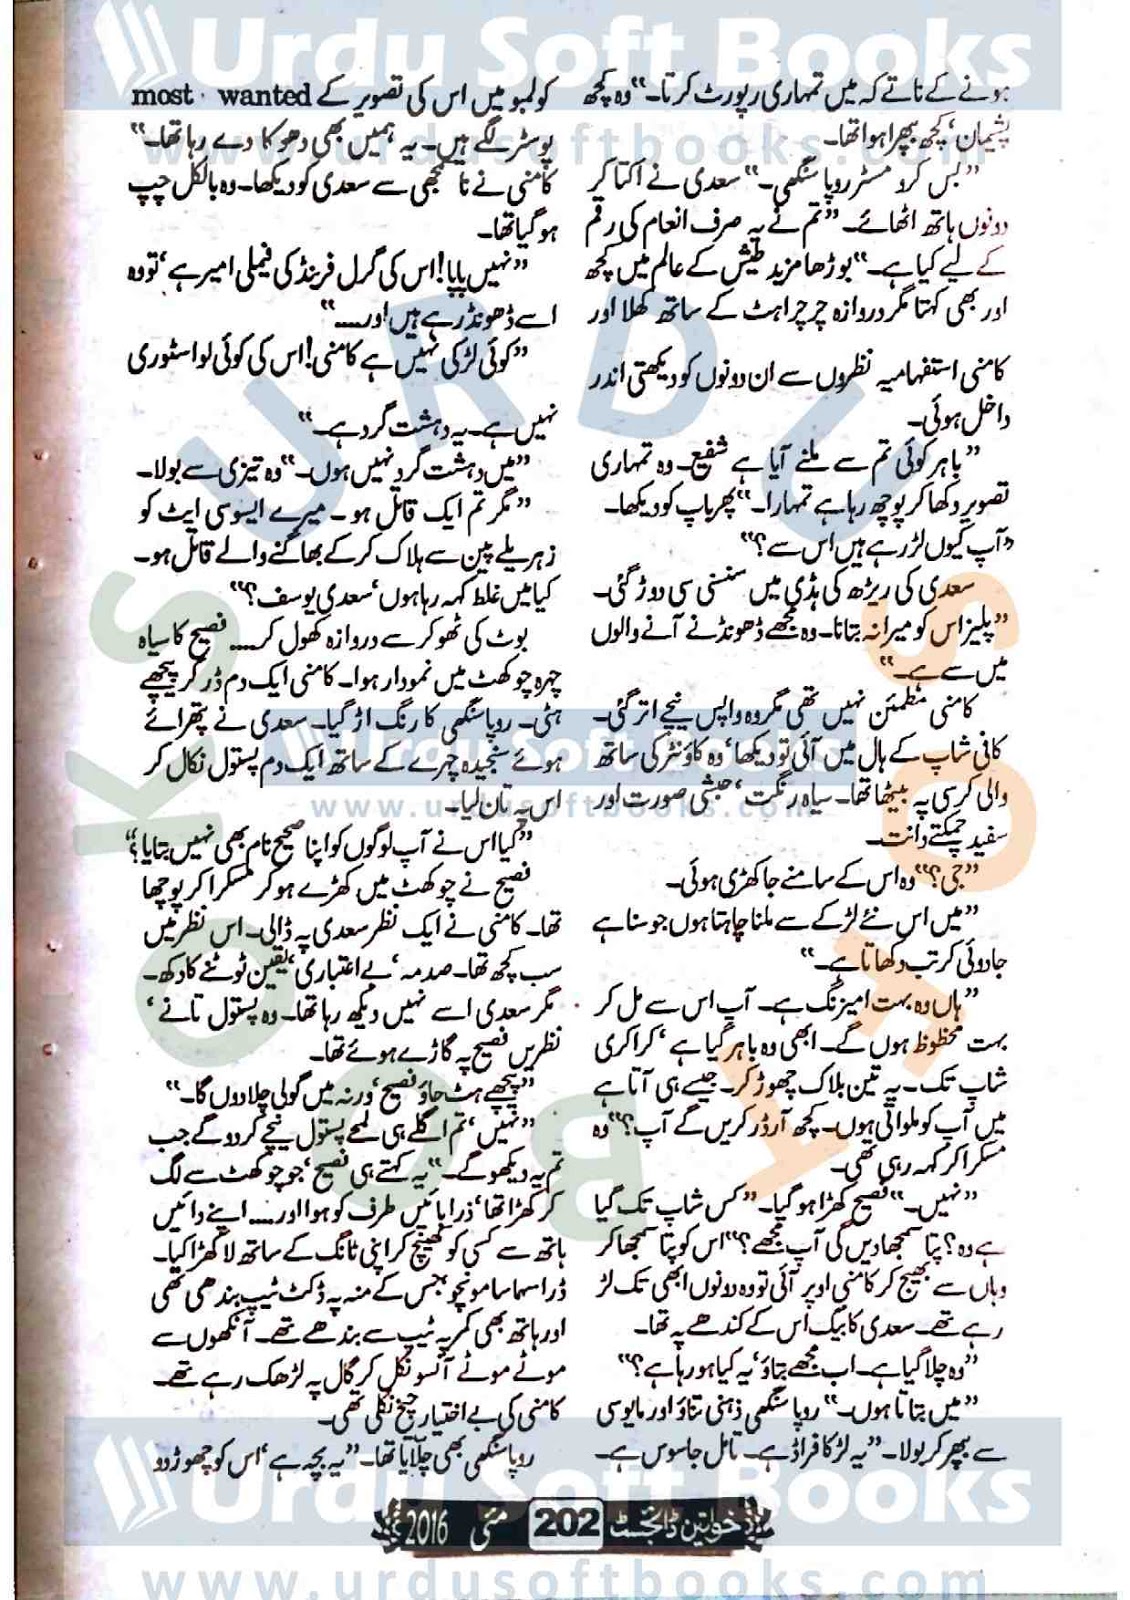 Urdu Soft Books
www.urdusoftbooks.com
ہونے کے ناتے کہ میں تمہاری رپورٹ کرتا۔“ وہ کچھ
پشیمان‘ کچھ بپھرا ہوا تھا۔
”بس کرو مسٹر روپا سنگھی۔“ سعدی نے اکتا کر
دونوں ہاتھ اٹھائے۔ ”تم نے یہ صرف انعام کی رقم
کے لیے کیا ہے۔“ بوڑھا مزید طیش کے عالم میں کچھ
اور بھی کہتا مگر دروازہ چرچراہٹ کے ساتھ کھلا اور
کامنی استفہامیہ نظروں سے ان دونوں کو دیکھتی اندر
داخل ہوئی۔
”باہر کوئی تم سے ملنے آیا ہے شفیع۔ وہ تمہاری
تصویر دکھا کر پوچھ رہا ہے تمہارا۔“ پھر باپ کو دیکھا۔
”آپ کیوں لڑ رہے ہیں اس سے؟“
سعدی کی ریڑھ کی ہڈی میں سنسنی سی دوڑ گئی۔
”پلیز اس کو میرا نہ بتانا۔ وہ مجھے ڈھونڈنے آنے والوں
میں سے ہے۔“
کامنی مطمئن نہیں تھی مگر وہ واپس نیچے اتر گئی۔
کافی شاپ کے ہال میں آئی تو دیکھا‘ وہ کاؤنٹر کی ساتھ
والی کرسی پہ بیٹھا تھا۔ سیاہ رنگت‘ حبشی صورت اور
سفید چمکتے دانت۔
”جی؟“ وہ اس کے سامنے جا کھڑی ہوئی۔
”میں اس نئے لڑکے سے ملنا چاہتا ہوں جو سنا ہے
جادوئی کرتب دکھاتا ہے۔“
”ہاں وہ بہت امیزنگ ہے۔ آپ اس سے مل کر
بہت محظوظ ہوں گے۔ ابھی وہ باہر گیا ہے‘ کراکری
شاپ تک۔ یہ تین بلاک چھوڑ کر۔ جیسے ہی آتا ہے
میں آپ کو ملواتی ہوں۔ کچھ آرڈر کریں گے آپ؟“ وہ
مسکرا کر کہہ رہی تھی۔
”نہیں۔“ فصیح کھڑا ہو گیا۔ ”کس شاپ تک گیا
ہے وہ؟ پتا سمجھا دیں گی آپ مجھے؟“ اس کو پتا سمجھا کر
وہاں سے بھیج کر کامنی اوپر آئی تو وہ دونوں ابھی تک لڑ
رہے تھے۔ سعدی کا بیگ اس کے کندھے پہ تھا۔
”وہ چلا گیا ہے۔ اب مجھے بتاؤ‘ یہ کیا ہو رہا ہے؟“
”میں بتاتا ہوں۔“ روپا سنگھی ذہنی تناؤ اور مایوسی
سے بپھر کر بولا۔ ”یہ لڑکا فراڈ ہے۔ تامل جاسوس ہے۔
کولمبو میں اس کی تصویر کے most wanted
پوسٹر لگے ہیں۔ یہ ہمیں بھی دھوکا دے رہا تھا۔“
کامنی نے ناسمجھی سے سعدی کو دیکھا۔ وہ بالکل چپ
ہو گیا تھا۔
”نہیں پاپا! اس کی گرل فرینڈ کی فیملی امیر ہے‘ تو وہ
اسے ڈھونڈ رہے ہیں اور....“
”کوئی لڑکی نہیں ہے کامنی! اس کی کوئی لو اسٹوری
نہیں ہے۔ یہ دہشت گرد ہے۔“
”میں دہشت گرد نہیں ہوں۔“ وہ تیزی سے بولا۔
”مگر تم ایک قاتل ہو۔ میرے ایسوسی ایٹ کو
زہریلے پین سے ہلاک کر کے بھاگنے والے قاتل ہو۔
کیا میں غلط کہہ رہا ہوں‘ سعدی یوسف؟“
بوٹ کی ٹھوکر سے دروازہ کھول کر.... فصیح کا سیاہ
چہرہ چوکھٹ میں نمودار ہوا۔ کامنی ایک دم ڈر کر پیچھے
ہٹی۔ روپا سنگھی کا رنگ اڑ گیا۔ سعدی نے پتھرائے
ہوئے سنجیدہ چہرے کے ساتھ ایک دم پستول نکال کر
اس پہ تان لیا۔
”کیا اس نے آپ لوگوں کو اپنا صحیح نام بھی نہیں بتایا؟“
فصیح نے چوکھٹ میں کھڑے ہو کر مسکرا کر پوچھا
تھا۔ کامنی نے ایک نظر سعدی پہ ڈالی۔ اس نظر میں
سب کچھ تھا۔ صدمہ‘ بے اعتباری‘ یقین ٹوٹنے کا دکھ۔
مگر سعدی اسے نہیں دیکھ رہا تھا۔ وہ پستول تانے‘
نظریں فصیح پہ گاڑے ہوئے تھا۔
”پیچھے ہٹ جاؤ فصیح‘ ورنہ میں گولی چلا دوں گا۔“
”نہیں‘ تم اگلے ہی لمحے پستول نیچے کر دو گے جب
تم یہ دیکھو گے۔“ یہ کہتے ہی فصیح‘ جو چوکھٹ سے لگ
کر کھڑا تھا‘ ذرا بائیں طرف کو ہوا اور.... اپنے دائیں
ہاتھ سے کسی کو کھینچ کر اپنی ٹانگ کے ساتھ لا کھڑا کیا۔
ڈرا سہما سا مونچو‘ جس کے منہ پہ ڈکٹ ٹیپ بندھی تھی
اور ہاتھ بھی کمر پہ ٹیپ سے بندھے تھے۔ آنکھوں سے
موٹے موٹے آنسو نکل کر گال پہ لڑھک رہے تھے۔
کامنی کی بے اختیار چیخ نکلی تھی۔
روپا سنگھی بھی چلّایا تھا۔ ”یہ بچہ ہے‘ اس کو چھوڑ دو
URDU SOFT BOOKS
Urdu Soft Books
www.urdusoftbooks.com
Urdu Soft Books
خواتین ڈائجسٹ 202 مئی 2016
www.urdusoftbooks.com